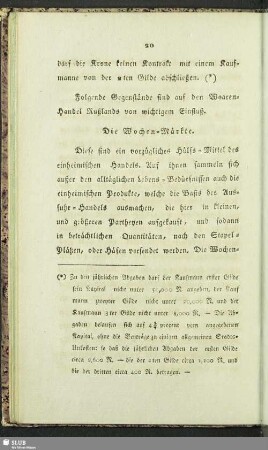 20
darf die Krone keinen Kontrakt mit einem Kauf-
manne von der 2ten Gilde abschließen. (*)
Folgende Gegenstände sind auf den Waaren-
Handel Rußlands von wichtigem Einfluß.
Die Wochen-Märkte.
Diese sind ein vorzügliches Hülfs-Mittel des
einheimischen Handels. Auf ihnen sammeln sich
außer den alltäglichen Lebens-Bedürfnissen auch die
einheimischen Produkte, welche die Basis des Aus-
fuhr-Handels ausmachen, die hier in kleinen
und größeren Partheyen aufgekauft, und sodann
in beträchtlichen Quantitäten, nach den Stapel-
Plätzen, oder Häfen versendet werden. Die Wochen-
(*) Zu den jährlichen Abgaben darf der Kaufmann erster Gilde
sein Kapital nicht unter R. angeben, der Kauf
mann zweyter Gilde nicht unter R. und der
Kaufmann 3ter Gilde nicht unter 8,000 R. — Die Ab-
gaben belaufen sich auf vom angegebenen
Kapital, ohne die Beyträge zu einigen allgemeinen Stadt-
Unkosten: so daß die jährlichen Abgaben der ersten Gilde
circa R. — die der 2ten Gilde circa R. und
die der dritten circa 400 R. betragen. —
SLUB